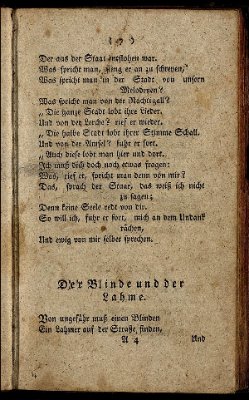 ( 7 )
Der aus der Stadt entflohen war.
Was spricht man, fieng er an zu schreyen,
Was spricht man in der Stadt von unsern
Melodeyen?
Was spricht man von der Nachtigall?
„ Die ganze Stadt lobt ihre Lieder.
Und von der Lerche? rief er wieder.
„ Die halbe Stadt lobt ihrer Stimme Schall.
Und von der Amsel? fuhr er fort.
„ Auch diese lobt man hier und dort.
Ich muß dich doch noch etwas fragen:
Was, rief er, spricht man denn von mir?
Das, sprach der Staar, das weiß ich nicht
zu sagen;
Denn keine Seele redt von dir.
So will ich, fuhr er fort, mich an dem Undank
rächen,
Und ewig von mir selber sprechen.
Der Blinde und der
Lahme.
Von ungefähr muß einen Blinden
Ein Lahmer auf der Straße finden,
A 4 Und